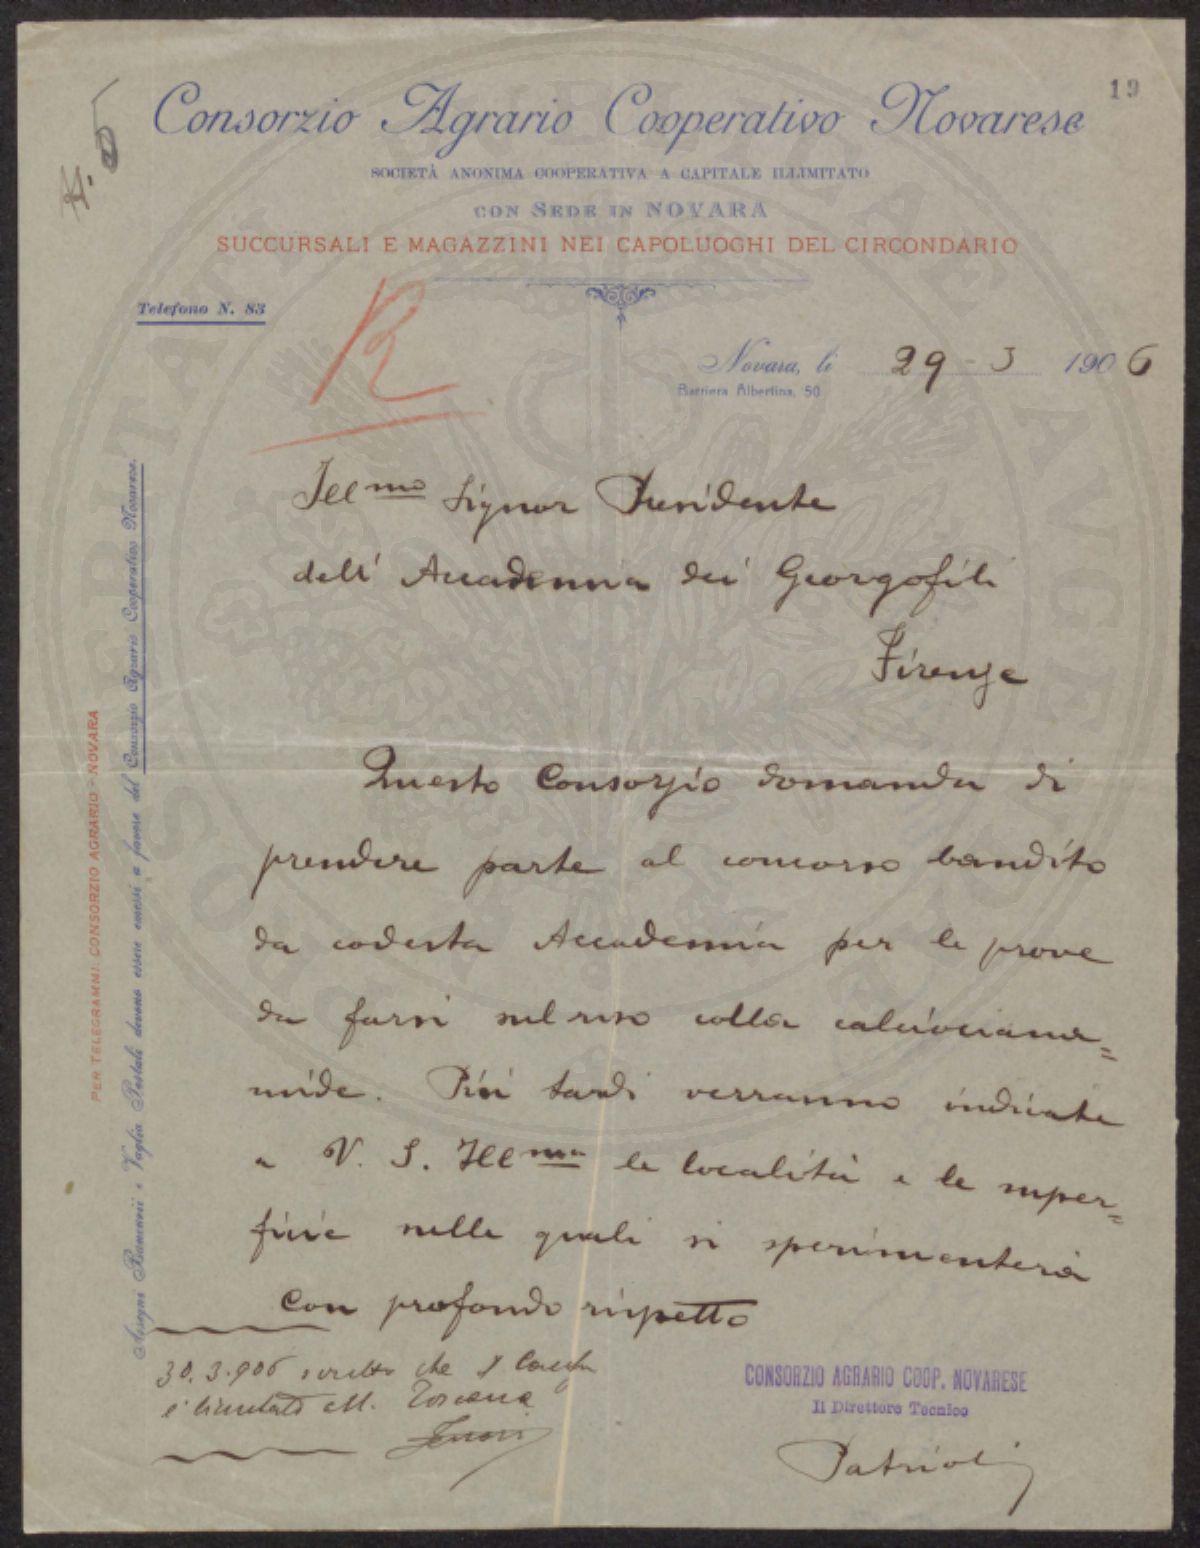 19
Consorzio Agrario Cooperativo Novarese
SOCIETÀ ANONIMA COOPERATIVA A CAPITALE ILLIMITATO
CON SEDE IN NOVARA
SUCCURSALI E MAGAZZINI NEI CAPOLUOGHI DEL CIRCONDARIO
Telefono N. 83
R
Novara, li 29-3 1906
Barriera Albertina, 50
Ill mo Signor Presidente
dell' Accademia dei Georgofili
Firenze
Questo Consorzio domanda di
prendere parte al concorso bandito
da codesta Accademia per le prove
da farsi sul riso colla calciociana=
mide. Più tardi verranno indicate
a V. S. Ill ma le località e le super=
ficie nelle quali si sperimenterà
Con profondo rispetto
30.3.906 scritto che
è limitato alla Toscana
CONSORZIO AGRARIO COOP. NOVARESE
Il Direttore Tecnico
PER TELEGRAMMI: CONSORZIO AGRARIO - NOVARA
Assegni Bancari e Vaglia Postali devono essere emessi a favore del Consorzio Agrario Cooperativo Novarese.